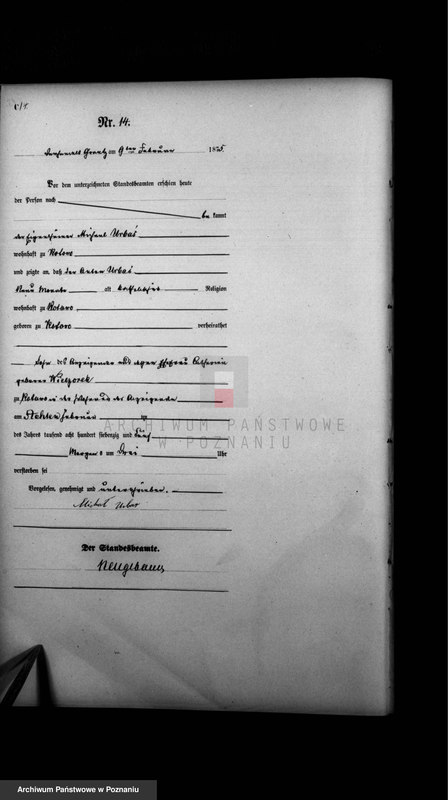 C/1.
Nr. 14.
am 9ten Februar 1875
Vor dem unterzeichneten Standesbeamten erschien heute
der Person nach
be kannt
der Eigenthümer Michael Urbas
wohnhaft zu
und zeigte an, daß der Anton Urbas
Neun Monate alt katholischer Religion
wohnhaft zu
geboren zu
verheirathet
Sohn des Anzeigenden und dessen Ehefrau Catharina
geborene Wieczorek
zu der Wohnung des Anzeigenden
am Achten Februar
des Jahres tausend acht hundert siebenzig und fünf
Morgens um Drei Uhr
verstorben sei
Vorgelesen, genehmigt und unterschrieben.
Michał Urbas
Der Standesbeamte.
Neugebauer
ARCHIWUM PAŃSTWOWE
W POZNANIU
Archiwum Państwowe w Poznaniu